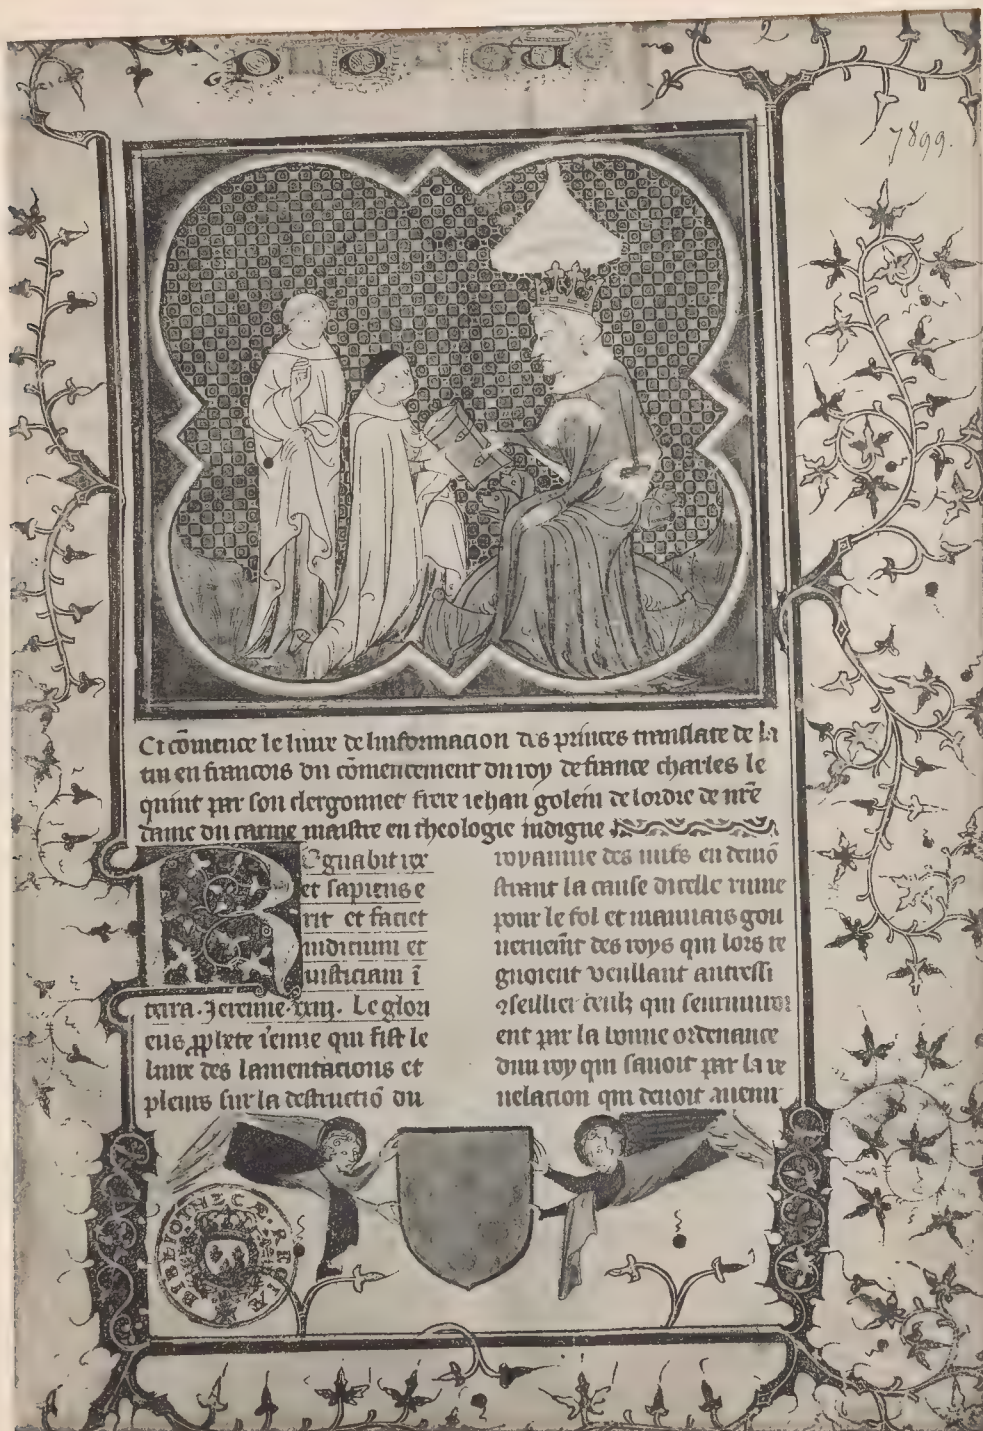 2
7899.
Ci cōmence le liure de linformacion des princes translate de la
tin en francois du cōmencement du roy de france charles le
quint par son clergonnet frere iehan golein de lordre de nr̄e
dame du carme maistre en theologie indigne
Regnabit rex
et sapiens e
rit et faciet
iudicium et
iusticiam ī
terra. Jeremie. xxiij. Le glori
eus ꝓphete ieremie qui fist le
liure des lamentacions et
pleurs sur la destructiō du
royaume des iuifs en demō
strant la cause dicelle ruine
pour le fol et mauuais gou
uernem̄t des roys qui lors re
gnoient veullant autressi
ꝯseillier ceulz qui seuruiuroi
ent par la bonne ordenance
dun roy qui sauoit par la re
uelacion qui deuoit auenir
BIBLIOTHECÆ REGIÆ